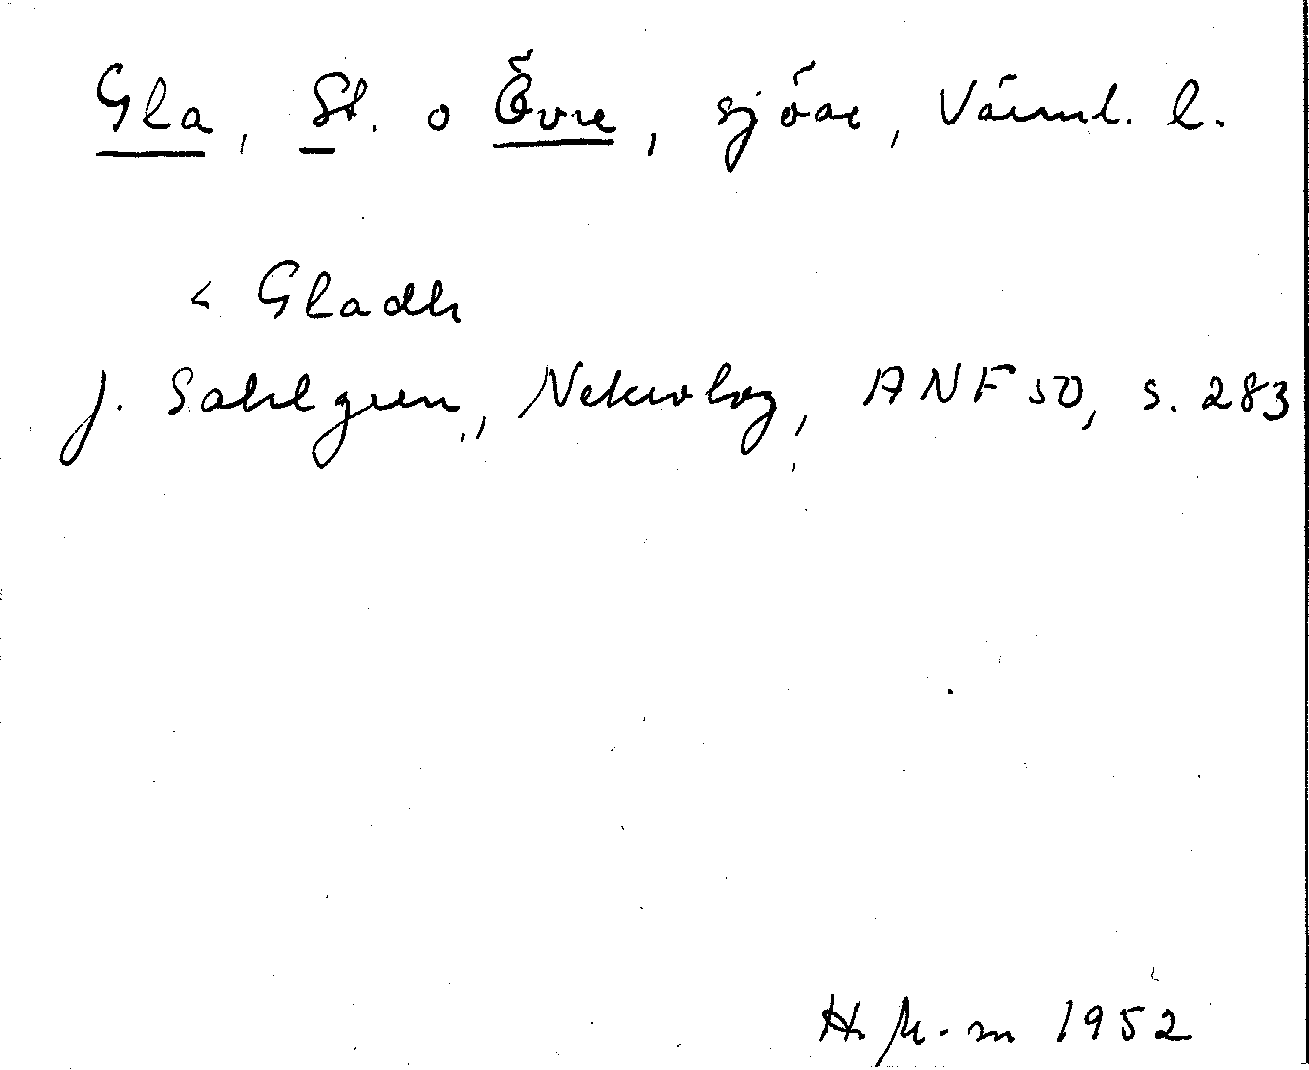 Gla, St. o Övre, sjöar, Värml. l.
< Gladh
J. Sahlgren, Nekrolog, ANF 50, s. 283
H. 1952